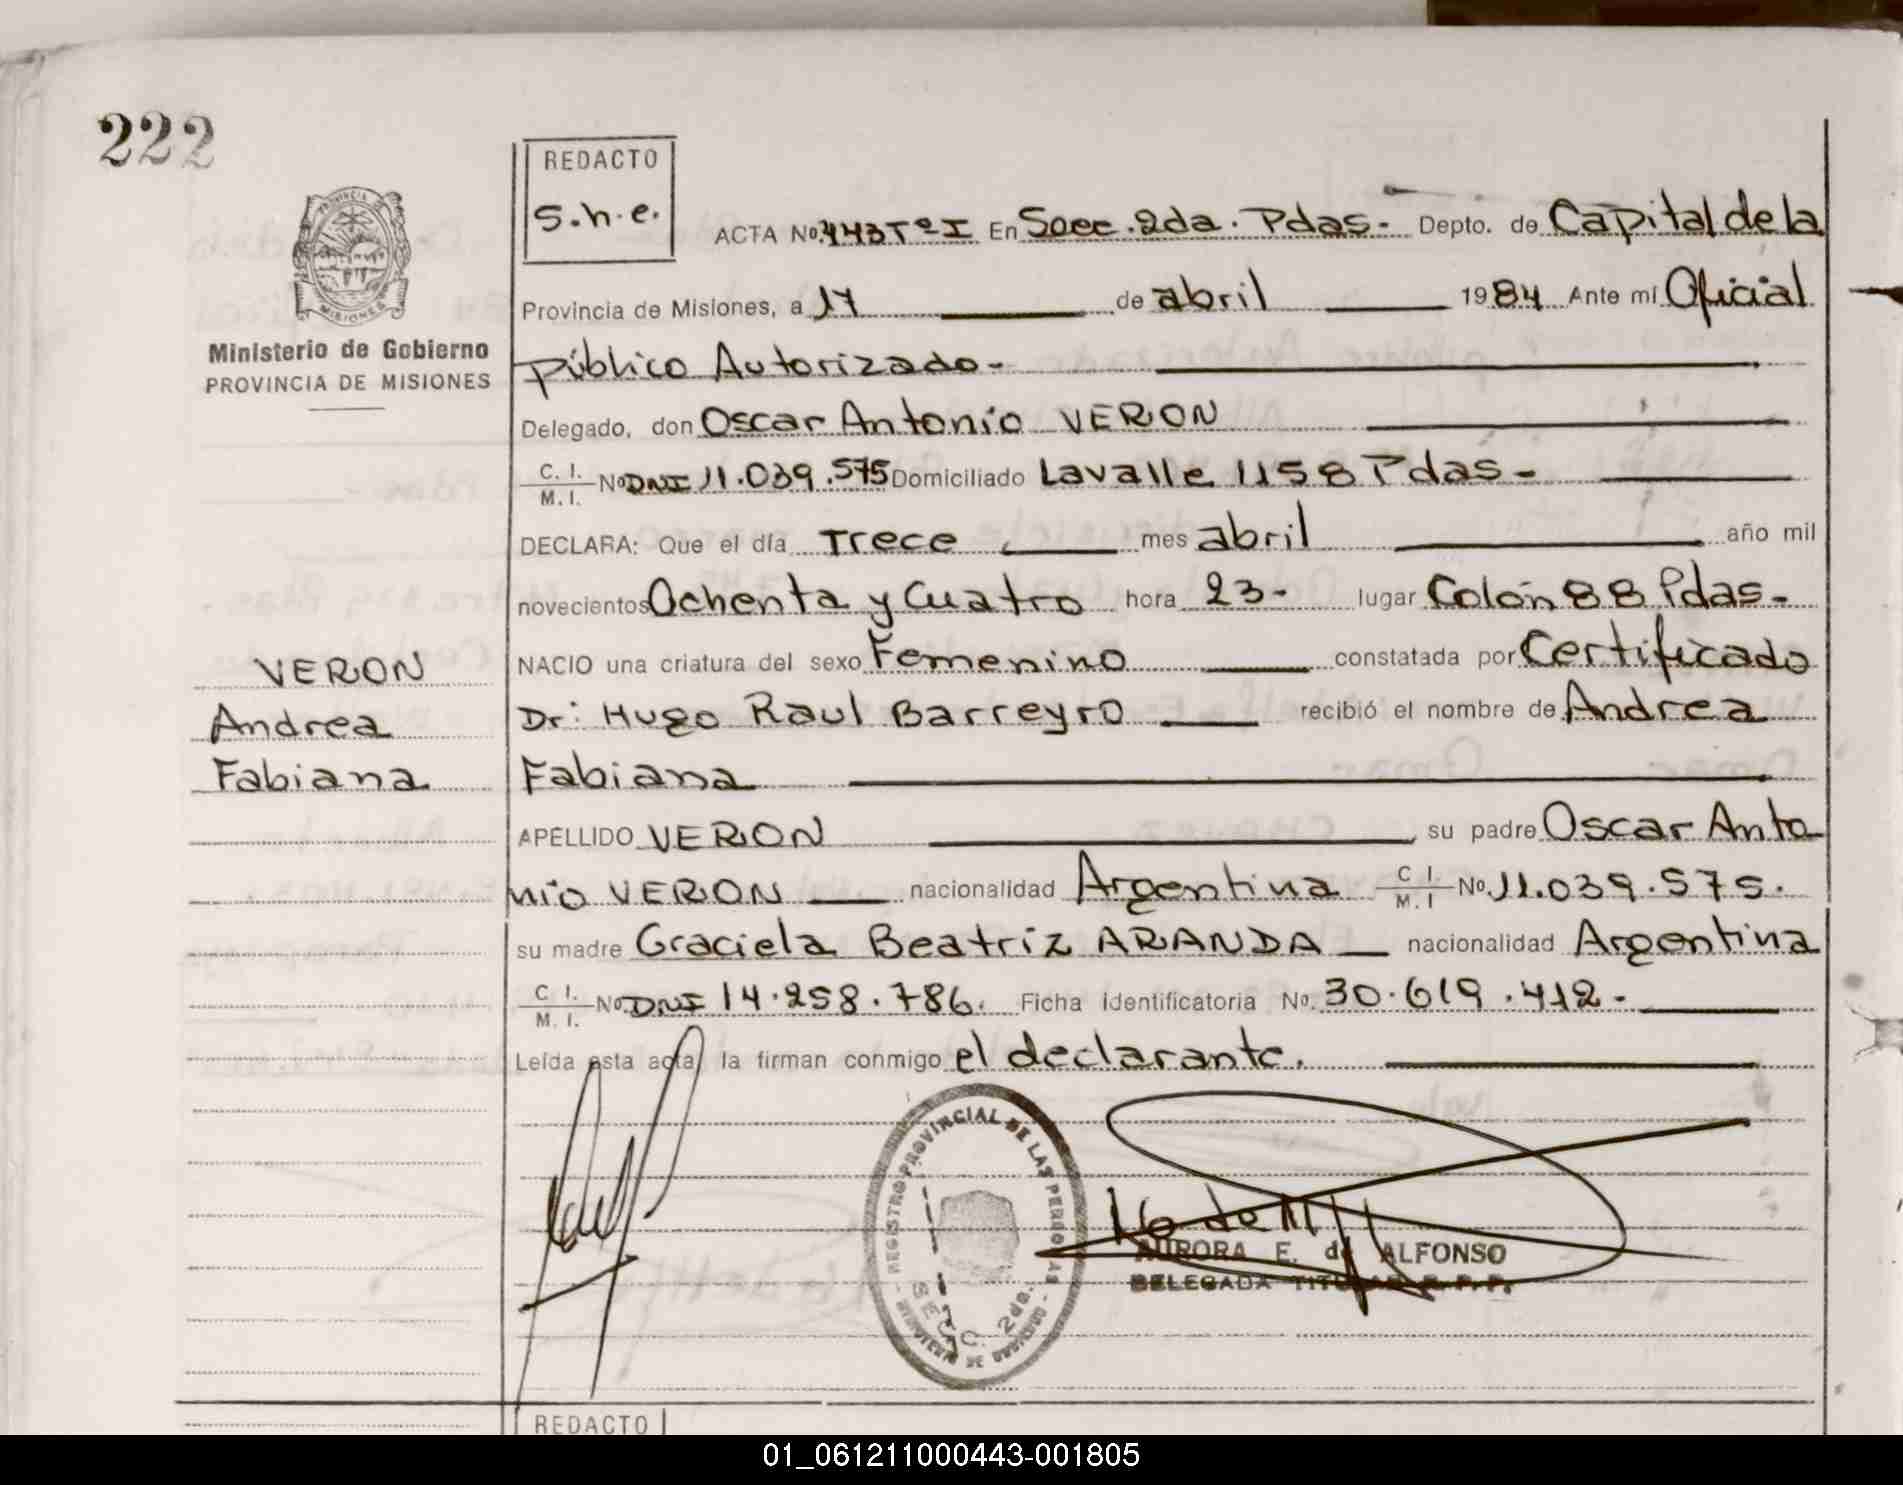 222
REDACTO
S.h.e.
ACTA No. 443 Tº I En Secc. 2da. Pdas- Depto. de Capital de la
PROVINCIA DE
MISIONES
Ministerio de Gobierno
PROVINCIA DE MISIONES
Provincia de Misiones, a 17 de abril 1984 Ante mí Oficial
público Autorizado-
Delegado, don Oscar Antonio VERON
C. I. M. I. No DNI 11.039.575 Domiciliado Lavalle 1158 Pdas-
DECLARA: Que el día Trece mes abril año mil
novecientos Ochenta y Cuatro hora 23- lugar Colón 88 Pdas-
NACIO una criatura del sexo Femenino constatada por Certificado
Dr: Hugo Raul Barreyro recibió el nombre de Andrea
Fabiana
VERON
Andrea
Fabiana
APELLIDO VERON su padre Oscar Anto
nio VERON nacionalidad Argentina C. I. M. I No. 11.039.575.
su madre Graciela Beatriz ARANDA nacionalidad Argentina
C. I. M. I. No DNI 14.258.786. Ficha Identificatoria No. 30.619.412-
Leída esta acta, la firman conmigo el declarante.
REGISTRO PROVINCIAL DE LAS PERSONAS
SECC. 2da.
MINISTERIO DE GOBIERNO
AURORA E. de ALFONSO
DELEGADA TITULAR R. P. P.
REDACTO
01_061211000443-001805